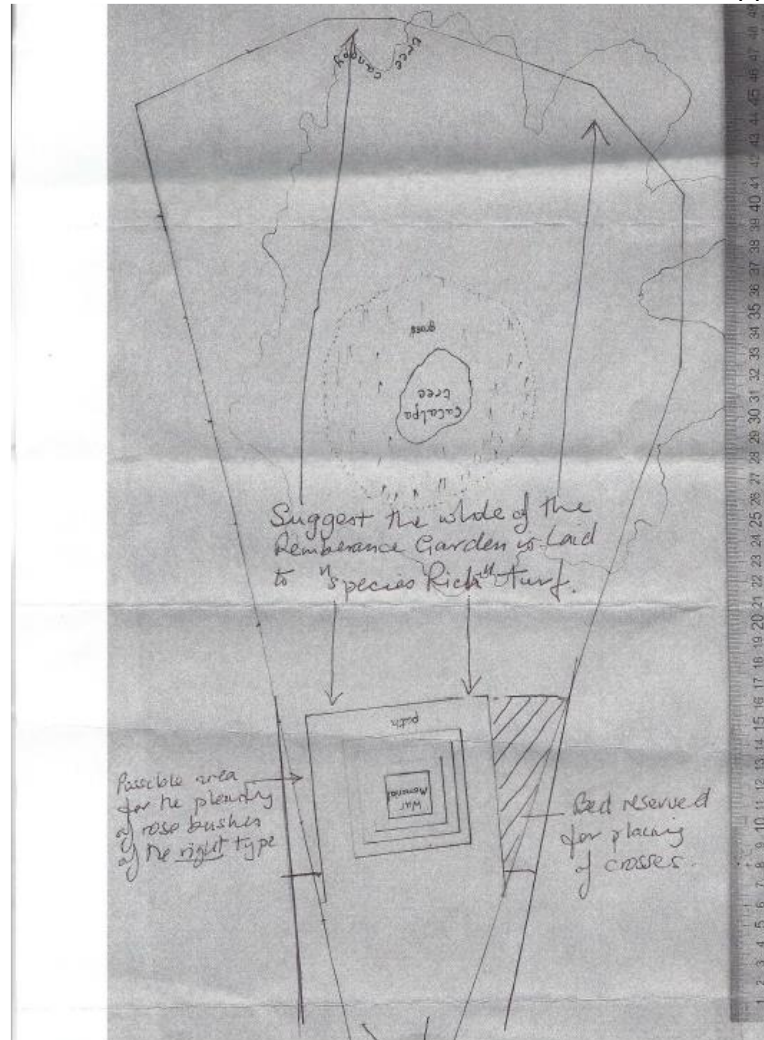 tree
canopy
grass
Catalpa
tree
Suggest the whole of the
Rembrance Garden is laid
to "Species Rich" turf.
path
War
Memorial
Possible area
for the planting
of rose bushes
of the right type
Bed reserved
for placing
of crosses.
1 2 3 4 5 6 7 8 9 10 11 12 13 14 15 16 17 18 19 20 21 22 23 24 25 26 27 28 29 30 31 32 33 34 35 36 37 38 39 40 41 42 43 44 45 46 47 48 49